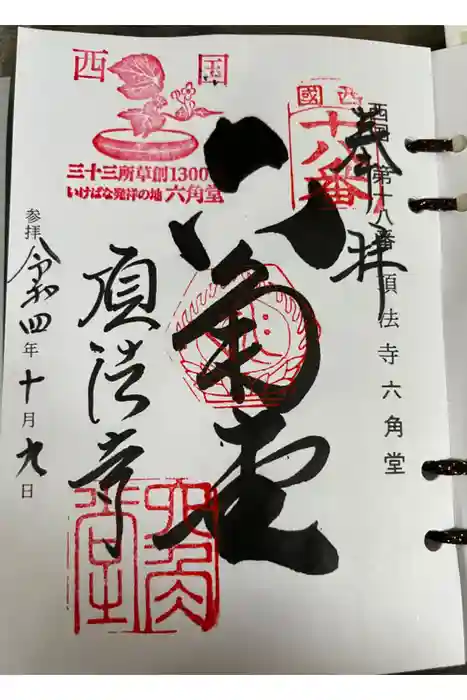 奉拝
西国第十八番 頂法寺六角堂
西國
十八番
六角堂
西国
三十三所草創1300年
いけばな発祥の地 六角堂
頂法寺
六角堂
参拝 令和四年十月九日